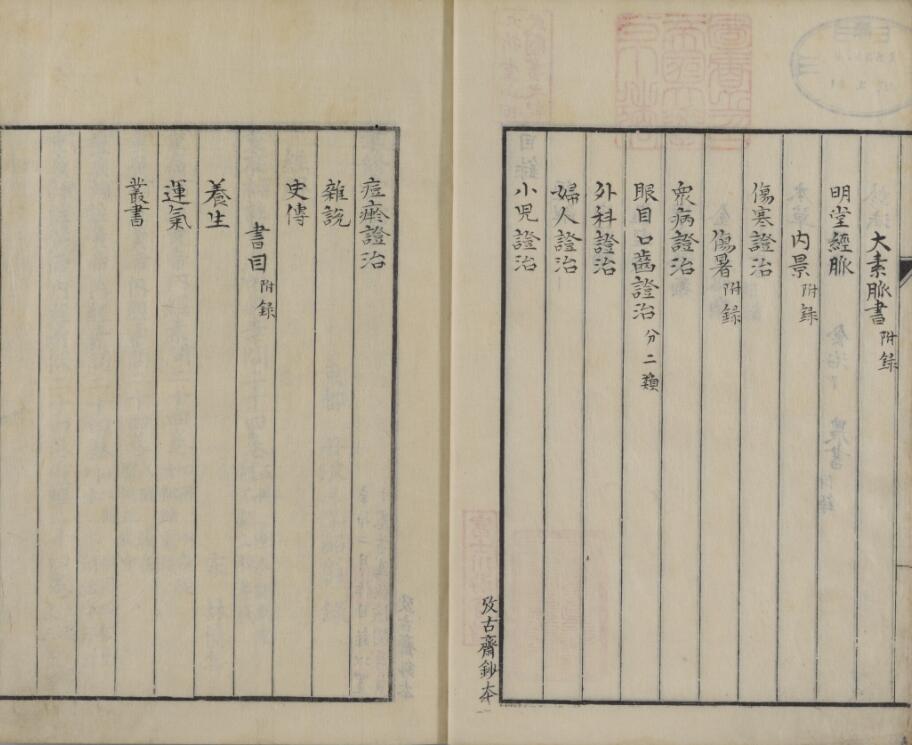 大素脉書附録
明堂經脈
内景附録
傷寒證治
傷暑附録
衆病證治
眼目口齒證治分二類
外科證治
婦人證治
小児證治
攷古齋鈔本
痘瘀證治
雜説
史傳
書目附録
養生
運氣
叢書